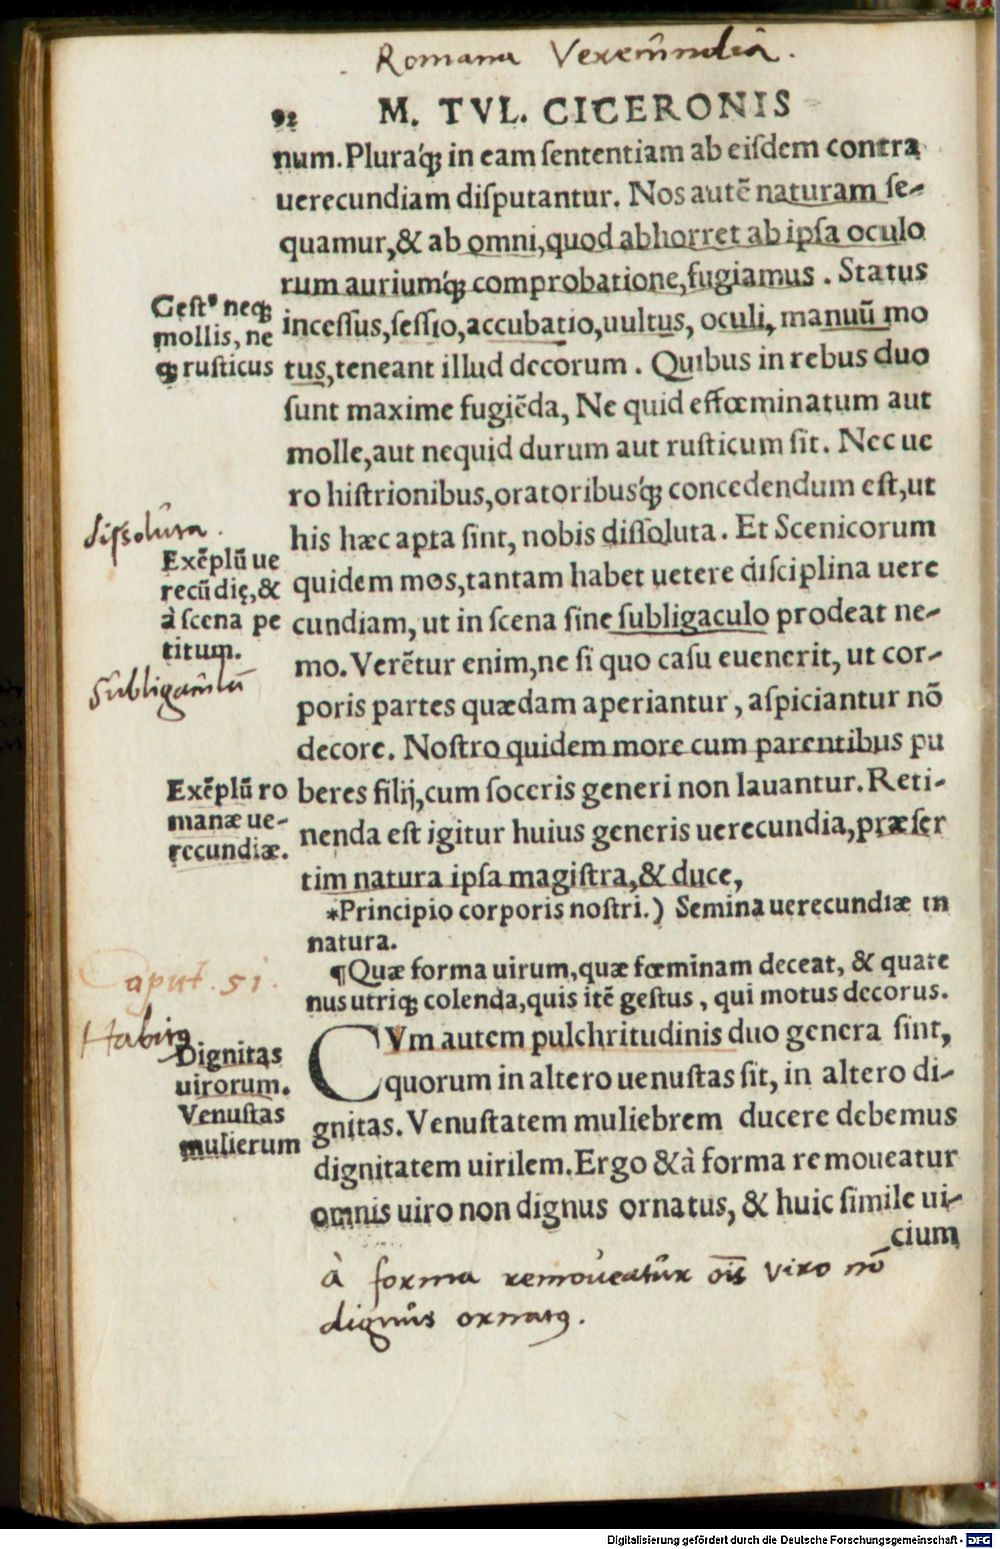 Romana Verecundia.
92 M. TVL. CICERONIS
num. Pluraq́; in eam ſententiam ab eiſdem contra
uerecundiam diſputantur. Nos autē naturam ſe-
quamur, & ab omni, quod abhorret ab ipſa oculo
rum auriumq́; comprobatione, fugiamus. Status
Geſtꝰ neq;
mollis, ne
q; ruſticus
inceſſus, ſeſſio, accubatio, uultus, oculi, manuū mo
tus, teneant illud decorum. Quibus in rebus duo
ſunt maxime fugiēda, Ne quid effœminatum aut
molle, aut nequid durum aut ruſticum ſit. Nec ue
ro hiſtrionibus, oratoribusq́; concedendum eſt, ut
diſſoluta.
his hæc apta ſint, nobis diſſoluta. Et Scenicorum
Exēplū ue
recūdię, &
à ſcena pe
titum.
quidem mos, tantam habet uetere diſciplina uere
cundiam, ut in ſcena ſine ſubligaculo prodeat ne-
Subligaculū
mo. Verētur enim, ne ſi quo caſu euenerit, ut cor-
poris partes quædam aperiantur, aſpiciantur nō
decore. Noſtro quidem more cum parentibus pu
Exēplū ro
manæ ue-
recundiæ.
beres filij, cum ſoceris generi non lauantur. Reti-
nenda eſt igitur huius generis uerecundia, præſer
tim natura ipſa magiſtra, & duce,
*Principio corporis noſtri.) Semina uerecundiæ in
natura.
¶Quæ forma uirum, quæ fœminam deceat, & quate
nus utriq; colenda, quis itē geſtus, qui motus decorus.
Caput. 51.
Habitꝰ
Dignitas
uirorum.
Venuſtas
mulierum
CVm autem pulchritudinis duo genera ſint,
quorum in altero uenuſtas ſit, in altero di-
gnitas. Venuſtatem muliebrem ducere debemus
dignitatem uirilem. Ergo & à forma remoueatur
omnis uiro non dignus ornatus, & huic ſimile ui-
cium
à forma remoueatur oīs viro nō
dignus ornatꝰ.
Digitalisierung gefördert durch die Deutsche Forschungsgemeinschaft - DFG